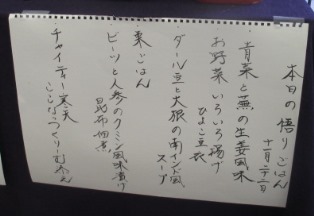 本日の悟りごはん
十一月二十二日
青菜と蕪の生姜風味
お野菜いろいろ揚げ
ひよこ豆衣
ダール豆と大根の南インド風
スープ
栗ごはん
ビーツと人参のクミン風味漬け
昆布佃煮
チャイティー寒天